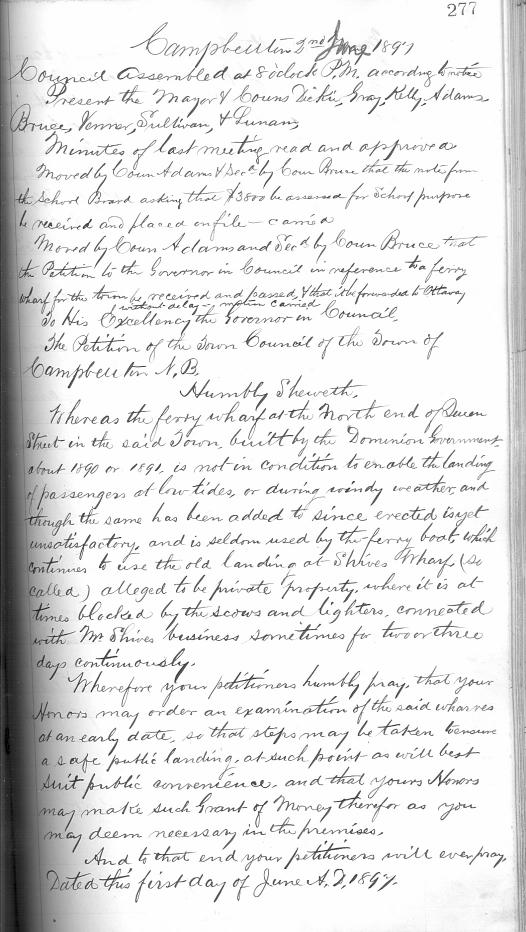 277
Campbellton 2nd June 1897
Council assembled at 8 oclock P.M. according to notice
Present the Mayor & Couns Dickie, Gray, Kelly, Adams
Bruce, Venner, Sullivan, & Lunam,
Minutes of last meeting read and approved
Moved by Coun Adams & Secd by Coun Bruce that the note from
the School Board asking that $3800 be assessed for School purpose
be received and placed on file – carried
Moved by Coun Adams and Secd by Coun Bruce that
the Petition to the Governor in Council in reference to a ferry
wharf for the town be received and passed, & that it be forwarded to Ottawa
without delay – motion carried
To His Excellency the Governor in Council,
The Petition of the Town Council of the Town of
Campbellton N.B.
Humbly Sheweth,
Whereas the ferry wharf at the North end of Queen
Street in the said Town, built by the Dominion Government
about 1890 or 1891, is not in condition to enable the landing
of passengers at low tides, or during windy weather, and
though the same has been added to since erected is yet
unsatisfactory, and is seldom used by the ferry boat, which
continues to use the old landing at Shives Wharf, (so
called) alleged to be private property, where it is at
times blocked by the scows and lighters, connected
with Mr Shives business sometimes for two or three
days continuously.
Wherefore your petitioners humbly pray, that your
Honors may order an examination of the said wharves
at an early date, so that steps may be taken to ensure
a safe public landing, at such point as will best
suit public convenience, and that yours Honors
may make such Grant of Money therefor as you
may deem necessary in the premises,
And to that end your petitioners will ever pray,
Dated this first day of June A.D. 1897.